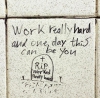 Work really hard
and one day this
can be you
R.I.P
worked
really hard